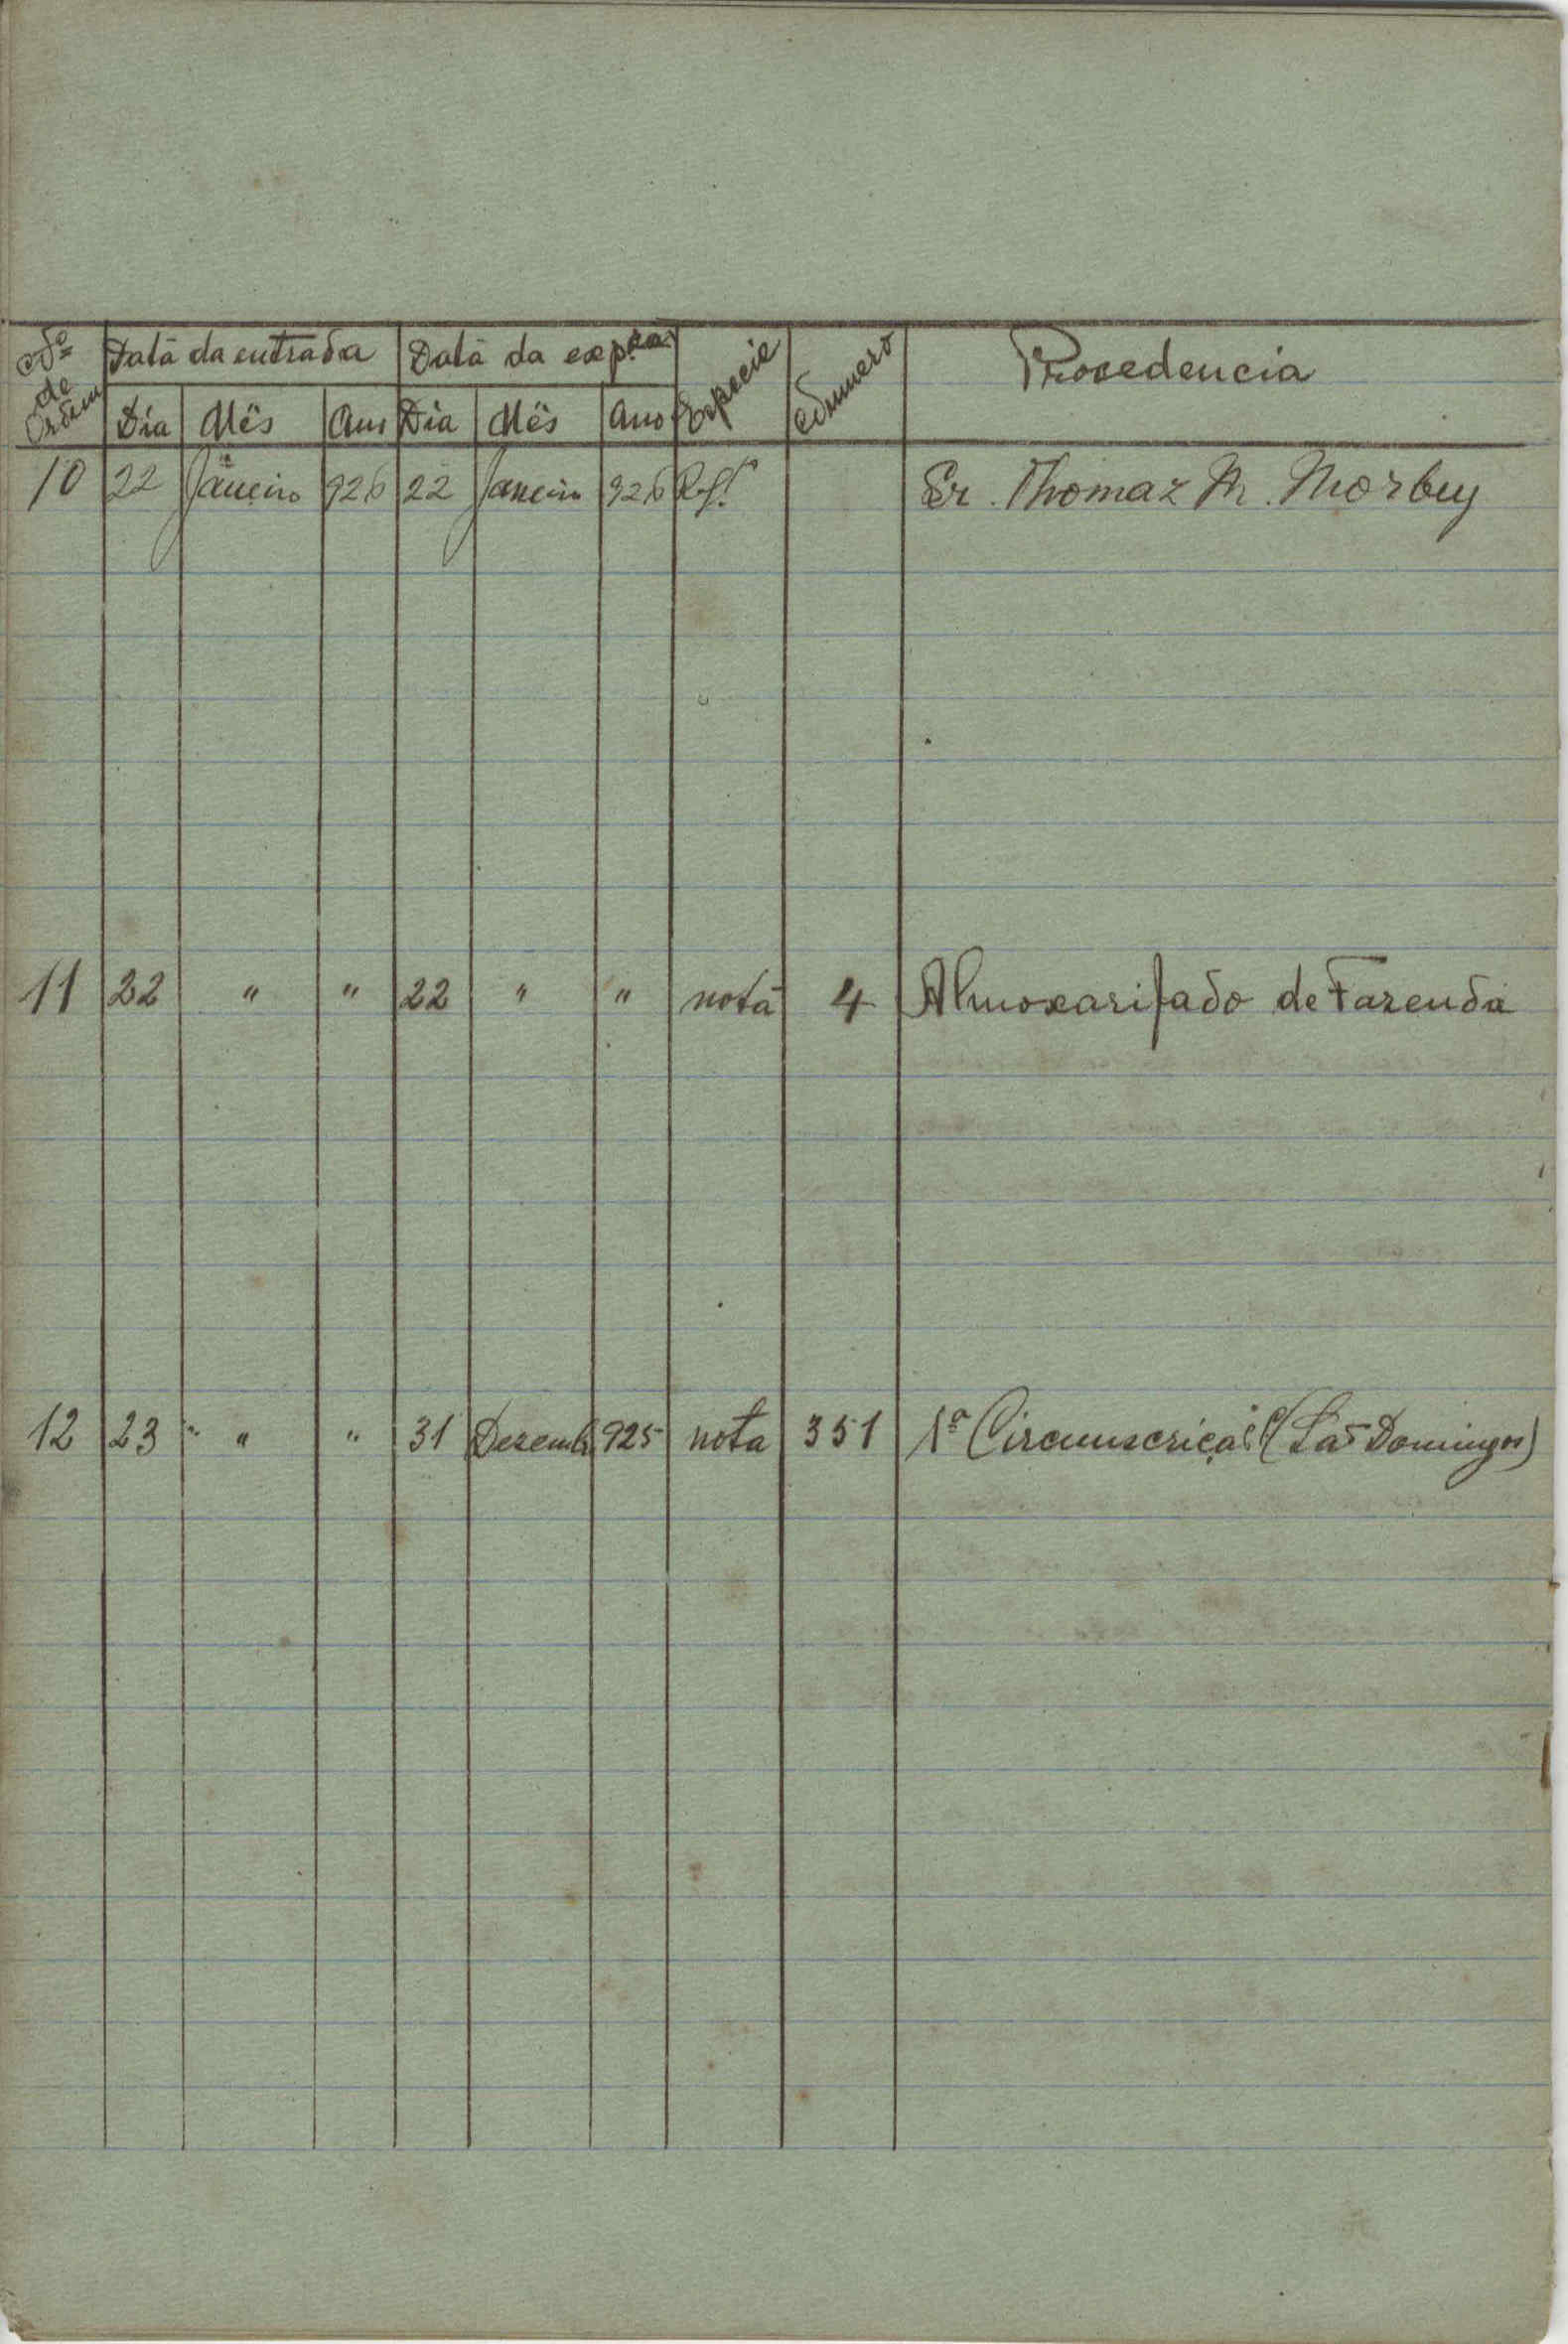 Nº de Ordem Data da entrada Data da exp.ção Especie Numero Procedencia
Dia Mês Ano Dia Mês Ano
10 22 Janeiro 926 22 Janeiro 926 Sr. Thomaz M. Morbey
11 22 " " 22 " " nota 4 Almoxarifado de Fazenda
12 23 " " " 31 Dezemb. 925 nota 351 1ª Circunscrição (São Domingos)